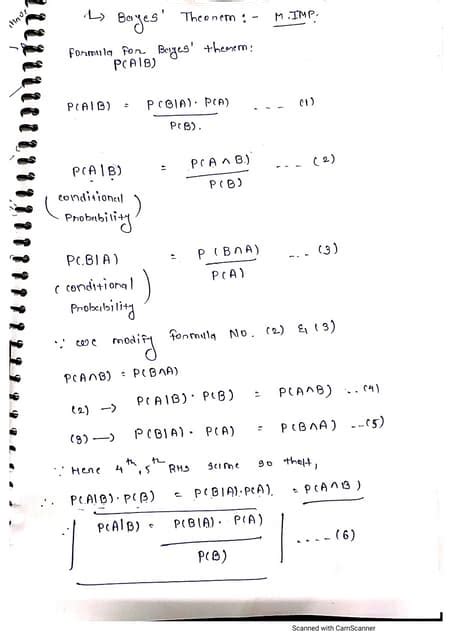 ↳ Bayes' Theorem :- M.IMP.
Formula for Bayes' theorem:
P(A|B)
P(A|B) = P(B|A)· P(A) --- (1)
P(B).
P(A|B) = P(A ∩ B) --- (2)
P(B)
(conditional
Probability)
P(B|A) = P(B∩A) --- (3)
P(A)
(conditional
Probability)
∵ we modify formula No. (2) & (3)
P(A∩B) = P(B∩A)
(2) → P(A|B)· P(B) = P(A∩B) ..(4)
(3) → P(B|A)· P(A) = P(B∩A) --(5)
∵ Here 4th, 5th RHS same so that,
∴ P(A|B)·P(B) = P(B|A)·P(A) = P(A∩B)
P(A|B) = P(B|A)· P(A) ----(6)
P(B)
Scanned with CamScanner